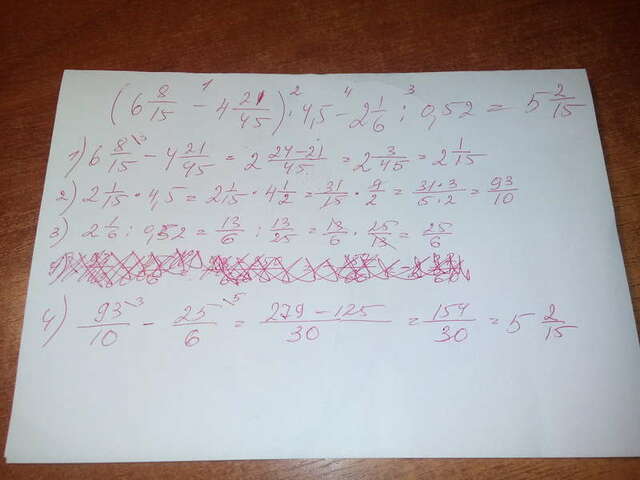 (6 8/15 - 4 21/45) · 4,5 - 2 1/6 : 0,52 = 5 2/15
1) 6 8/15 - 4 21/45 = 2 (24-21)/45 = 2 3/45 = 2 1/15
2) 2 1/15 · 4,5 = 2 1/15 · 4 1/2 = 31/15 · 9/2 = (31·3)/(5·2) = 93/10
3) 2 1/6 : 0,52 = 13/6 : 13/25 = 13/6 · 25/13 = 25/6
4) 93/10 - 25/6 = (279-125)/30 = 154/30 = 5 2/15